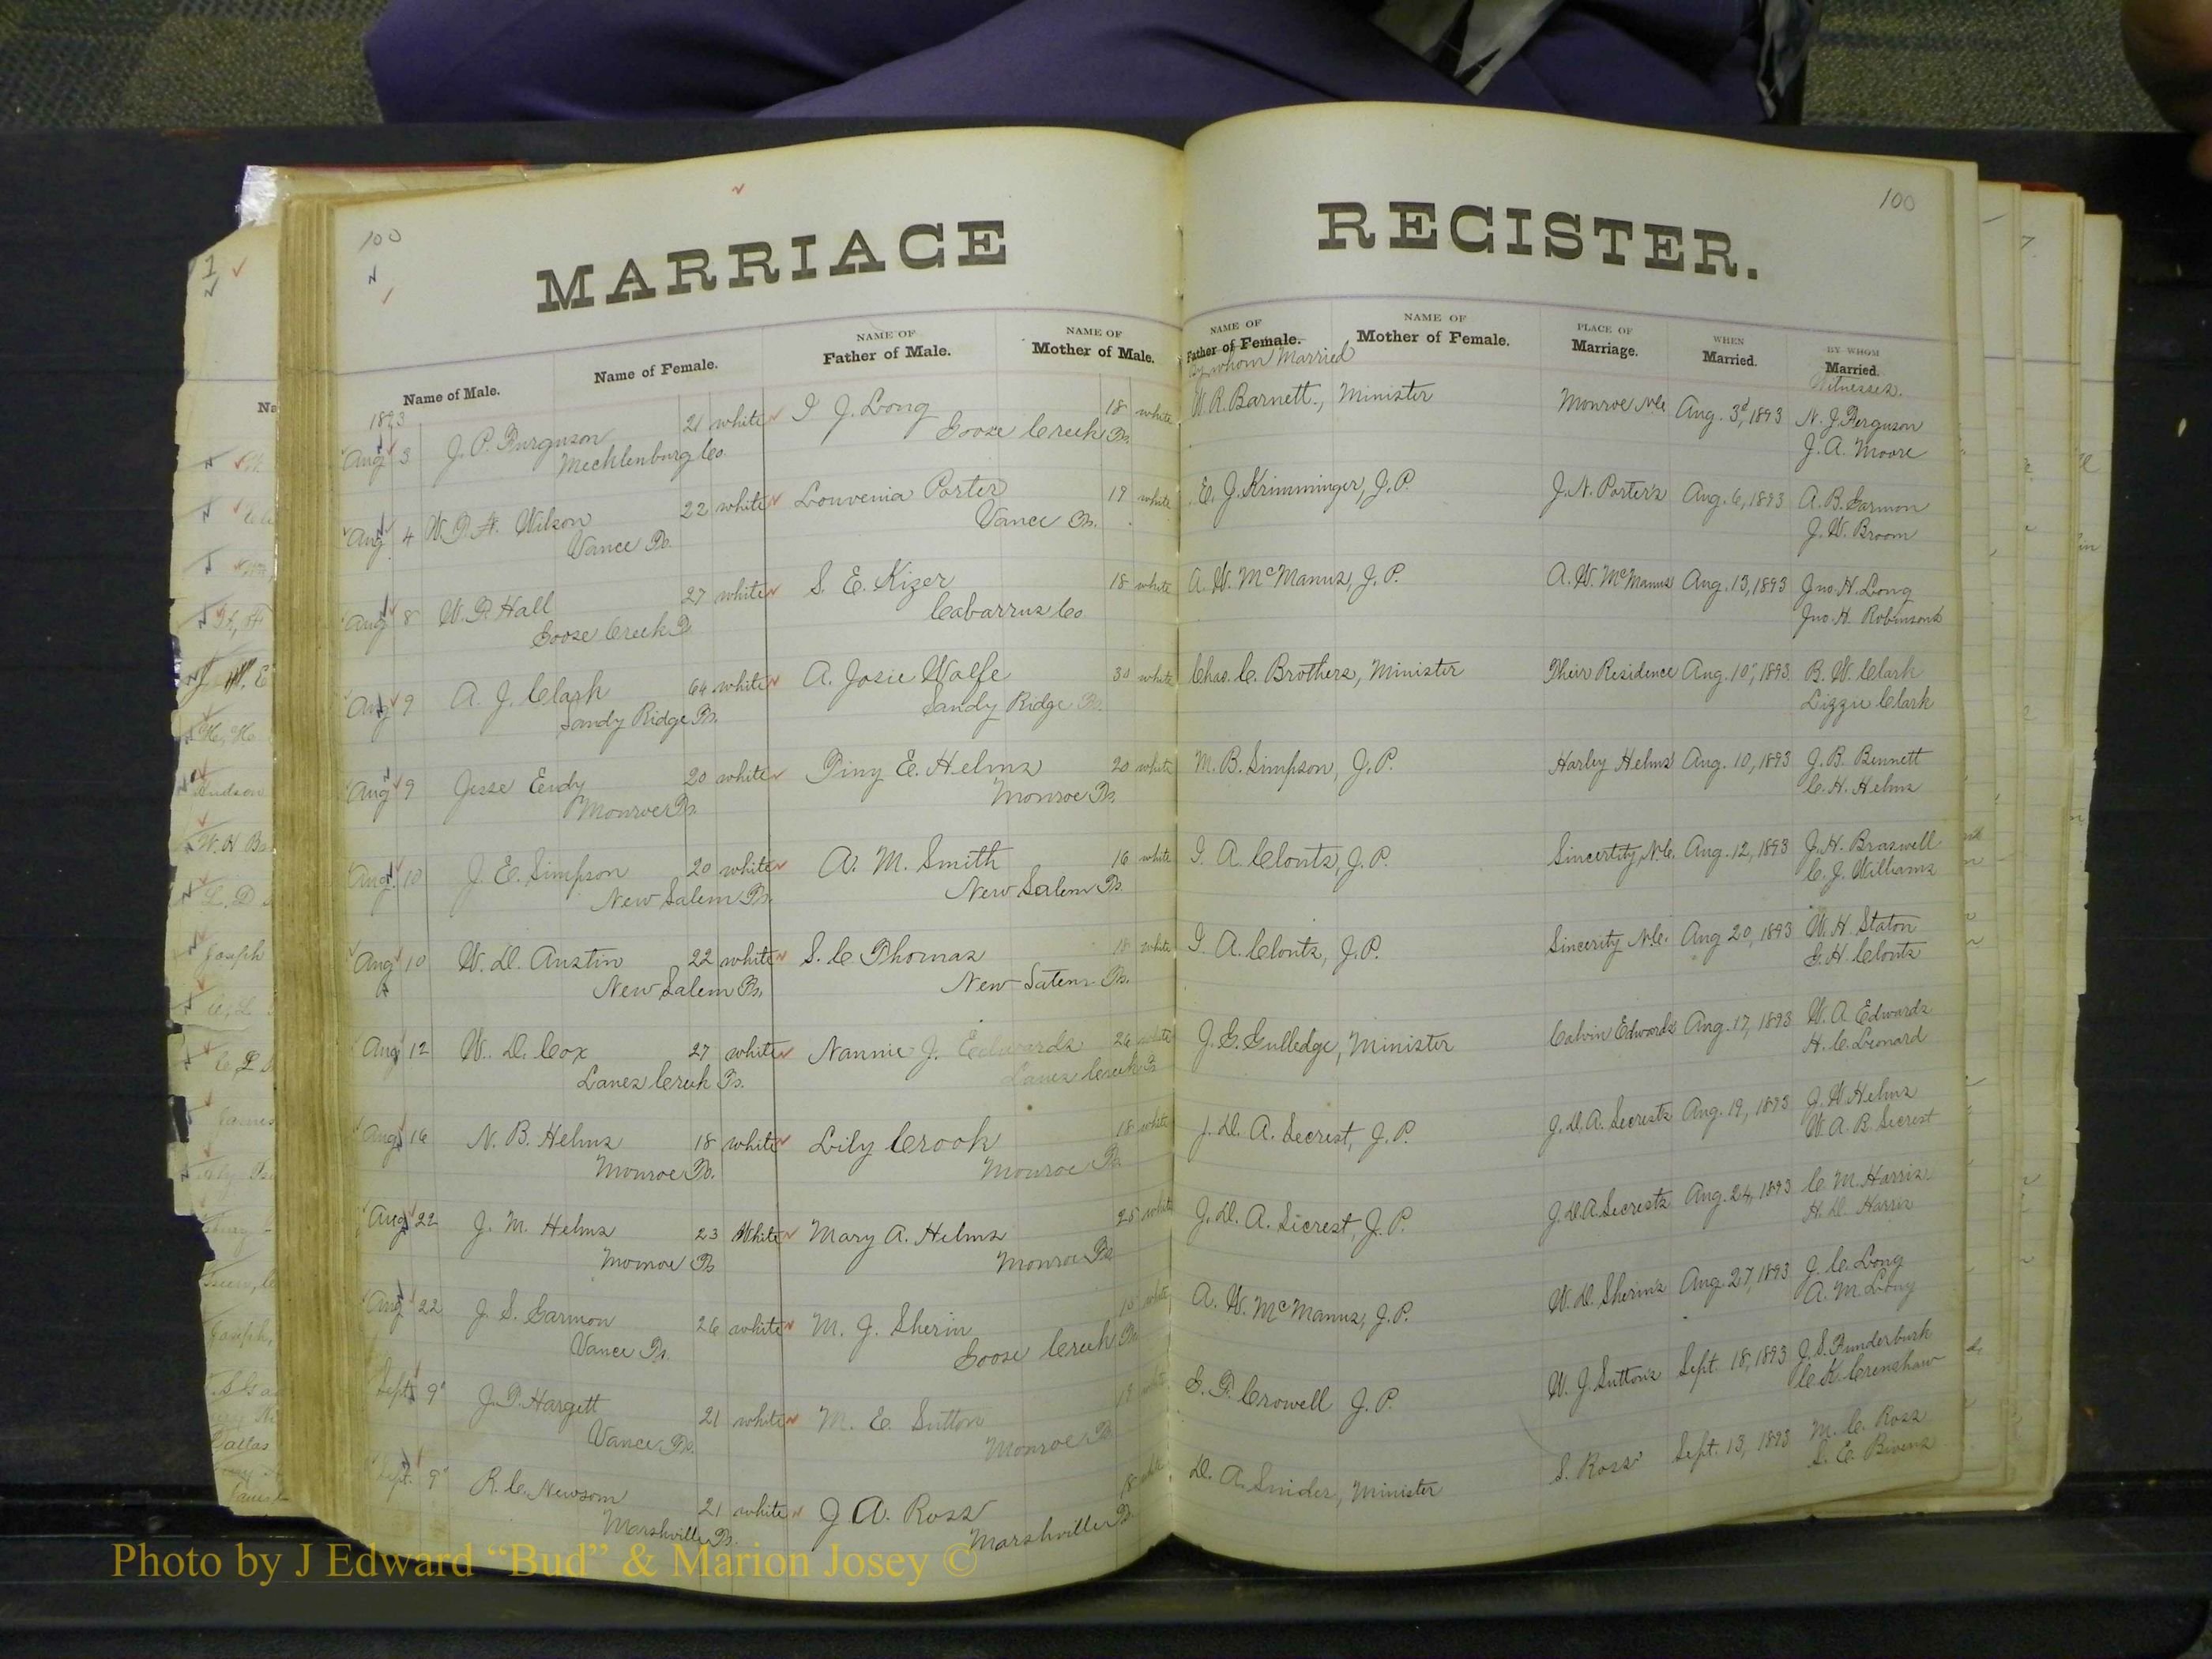 100
MARRIAGE
REGISTER.
100
Name of Male.
Name of Female.
NAME OF Father of Male.
NAME OF Mother of Male.
NAME OF Father of Female.
By whom Married
NAME OF Mother of Female.
PLACE OF Marriage.
WHEN Married.
BY WHOM Married.
Witnesses.
1893
Aug 3 J. P. Furguson 21 white I J. Long 18 white W. R. Barnett, Minister Monroe N.C. Aug. 3d, 1893 N. J. Ferguson
Mecklenburg Co. Goose Creek Ts. J. A. Moore
Aug 4 Wilson 22 white Louvenia Porter 19 white E. J. Krimminger, J.P. J. N. Porter's Aug. 6, 1893 A. B. Garmon
Vance Ts. Vance Ts. J. W. Broom
Aug 8 W. P. Hall 27 white S. E. Kizer 18 white A. W. McManus, J.P. A. W. McManus Aug. 13, 1893 Jno. H. Long
Goose Creek Cabarrus Co Jno. H. Robinson
Aug 9 A. J. Clark 64 white A. Josie Wolfe 30 white Chas. C. Brothers, Minister Their Residence Aug. 10, 1893 B. W. Clark
Sandy Ridge Ts. Sandy Ridge Ts. Lizzie Clark
Aug 9 Jesse Eudy 20 white Tiny E. Helms 20 white M. B. Simpson, J.P. Harley Helms Aug. 10, 1893 J. B. Bennett
Monroe Ts. Monroe Ts. C. H. Helms
Aug. 10 J. E. Simpson 20 white A. M. Smith 16 white I. A. Clontz, J.P. Sincertity, N.C. Aug. 12, 1893 J. H. Braswell
New Salem Ts. New Salem Ts. C. J. Williams
Aug 10 W. D. Austin 22 white S. C Thomas 18 white I. A. Clontz, J.P. Sincerity N.C. Aug 20, 1893 W. H. Staton
New Salem Ts. New Salem Ts. G. H. Clontz
Aug 12 W. D. Cox 27 white Nannie J. Edwards 26 white J. G. Gulledge, Minister Calvin Edwards Aug. 17, 1893 W. A Edwards
Lanes Creek Ts. Lanes Creek Ts H. C. Leonard
Aug 16 N. B. Helms 18 white Lily Crook 18 white J. D. A. Secrest, J.P. J. D. A. Secrests Aug. 19, 1893 J. W Helms
Monroe Ts. Monroe Ts W. A. B. Secrest
Aug 22 J. M. Helms 23 White Mary A. Helms 25 white J. D. A. Secrest, J.P. J. D. A Secrests Aug. 24, 1893 C. M. Harris
Monroe Ts Monroe Ts H. D. Harris
Aug 22 J. S. Garmon 26 white M. J. Sherin white A. W. McManus, J.P. W. D. Sherin's Aug. 27, 1893 J. C. Long
Vance Ts. Goose Creek Ts A. M. Long
Sept 9" J. P. Hargett 21 white M. E. Sutton white Crowell J.P. W. J. Sutton's Sept. 18, 1893 J. S. Funderburk
Vance Ts. Monroe Ts. C. K. Crenshaw
Sept. 9" R. C. Newsom 21 white J. A. Ross 18 white D. A. Snider, Minister S. Ross' Sept. 13, 1893 M. C. Ross
Marshville Ts. Marshville Ts. S. E. Bivens
Photo by J Edward “Bud” & Marion Josey ©